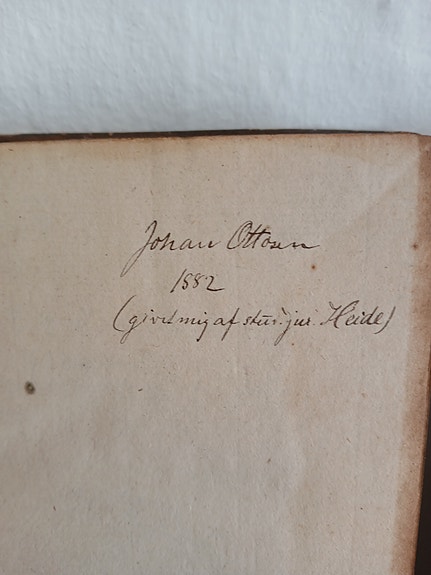 Johan Ottosen
1882
(givet mig af stud. jur. Heide)